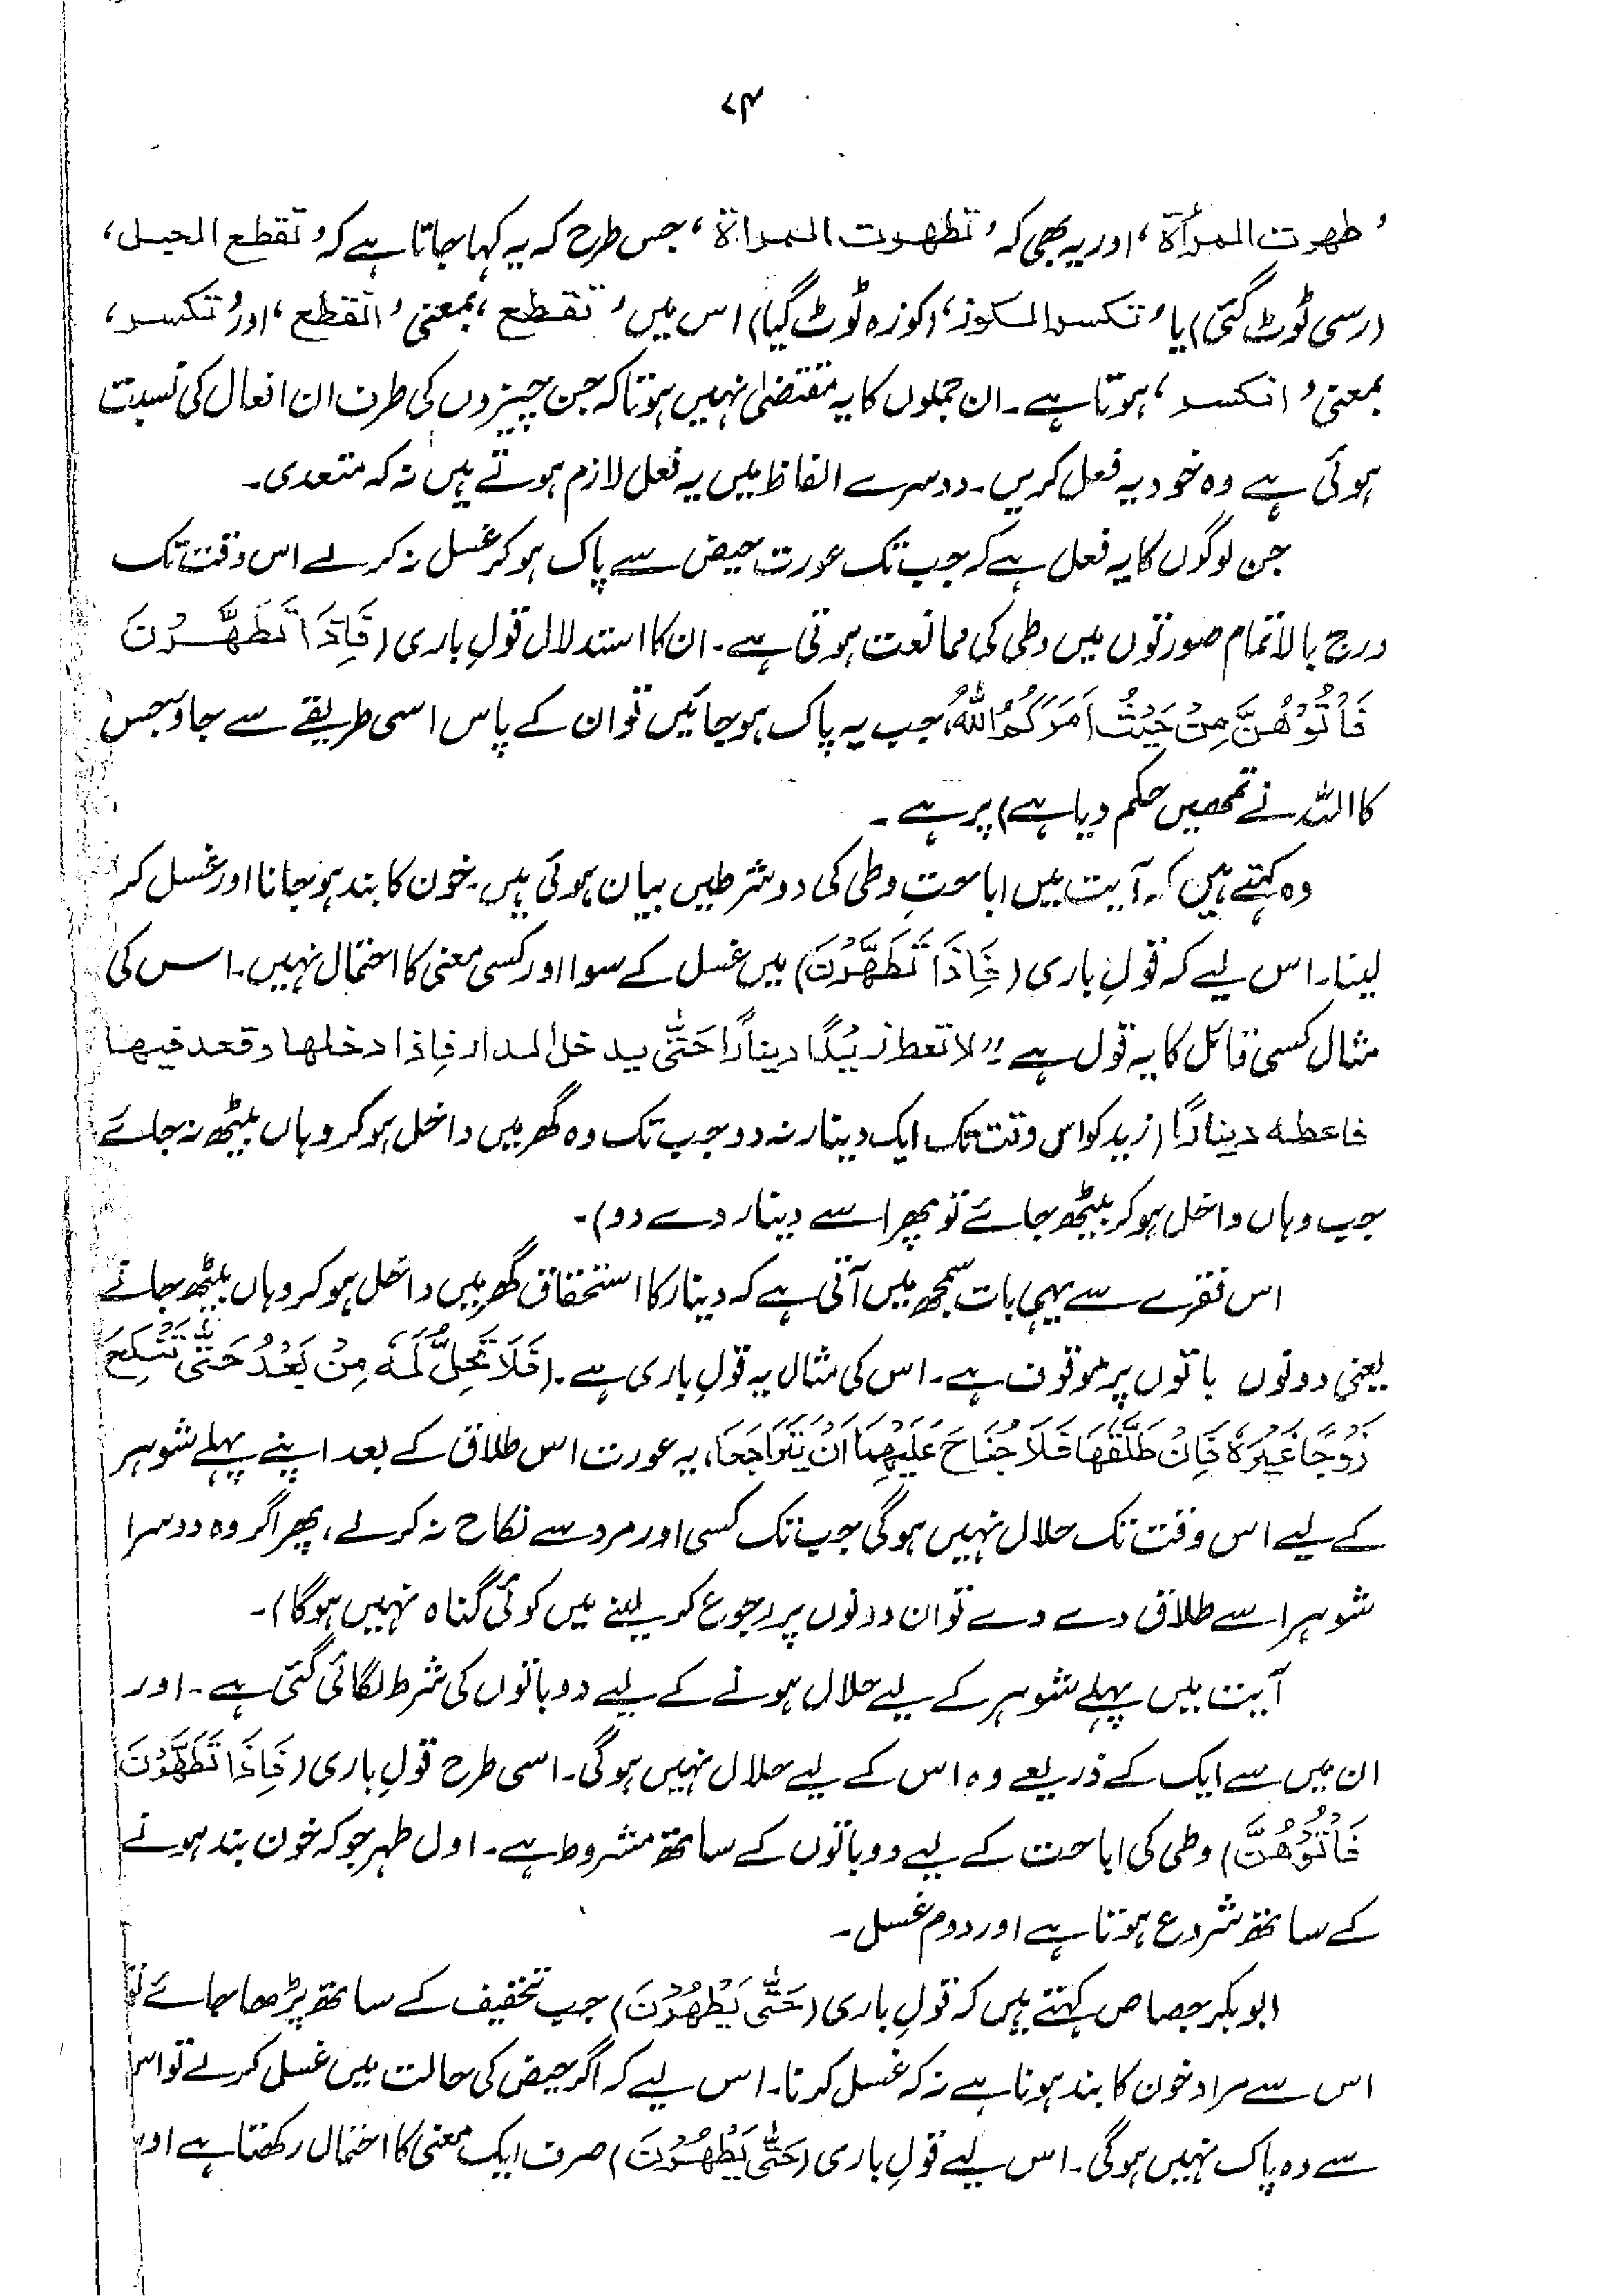 ۷۴
'طهرت المرأة' اور یہ بھی کہ 'تطهرت المرأة' جس طرح کہ یہ کہا جاتا ہے کہ 'تقطع الحبل'
(رسی ٹوٹ گئی) یا 'تکسر الکوز' (کوزہ ٹوٹ گیا) اس میں 'تقطع' بمعنی 'انقطع' اور 'تکسر'
بمعنی 'انکسر' ہوتا ہے۔ ان جملوں کا یہ مقتضیٰ نہیں ہوتا کہ جن چیزوں کی طرف ان افعال کی نسبت
ہوئی ہے وہ خود یہ فعل کریں۔ دوسرے الفاظ میں یہ فعل لازم ہوتے ہیں نہ کہ متعدی۔
جن لوگوں کا یہ فعل ہے کہ جب تک عورت حیض سے پاک ہو کر غسل نہ کر لے اس وقت تک
درج بالا تمام صورتوں میں وطی کی ممانعت ہوتی ہے۔ ان کا استدلال قولِ باری (فَاِذَا تَطَهَّرْنَ
فَأْتُوْهُنَّ مِنْ حَيْثُ اَمَرَكُمُ اللهُ، جب یہ پاک ہو جائیں تو ان کے پاس اسی طریقے سے جاؤ جس
کا اللہ نے تمھیں حکم دیا ہے) پر ہے۔
وہ کہتے ہیں کہ آیت میں اباحتِ وطی کی دو شرطیں بیان ہوئی ہیں۔ خون کا بند ہو جانا اور غسل کر
لینا۔ اس لیے کہ قولِ باری (فَاِذَا تَطَهَّرْنَ) میں غسل کے سوا اور کسی معنی کا احتمال نہیں۔ اس کی
مثال کسی قائل کا یہ قول ہے "لا تعط زیدًا دینارًا حَتّٰی یدخل الدار فاِذا دخلها وقعد فیها
فاعطه دینارًا (زید کو اس وقت تک ایک دینار نہ دو جب تک وہ گھر میں داخل ہو کر وہاں بیٹھ نہ جائے
جب وہاں داخل ہو کر بیٹھ جائے تو پھر اسے دینار دے دو)۔
اس فقرے سے یہی بات سمجھ میں آتی ہے کہ دینار کا استحقاق گھر میں داخل ہو کر وہاں بیٹھ جانے
یعنی دونوں باتوں پر موقوف ہے۔ اس کی مثال یہ قولِ باری ہے۔ (فَلَا تَحِلُّ لَهٗ مِنْ بَعْدُ حَتّٰى تَنْكِحَ
زَوْجًا غَيْرَهٗ فَاِنْ طَلَّقَهَا فَلَا جُنَاحَ عَلَيْهِمَا اَنْ يَّتَرَاجَعَا، یہ عورت اس طلاق کے بعد اپنے پہلے شوہر
کے لیے اس وقت تک حلال نہیں ہوگی جب تک کسی اور مرد سے نکاح نہ کر لے، پھر اگر وہ دوسرا
شوہر اسے طلاق دے دے تو ان دونوں پر رجوع کر لینے میں کوئی گناہ نہیں ہوگا)۔
آیت میں پہلے شوہر کے لیے حلال ہونے کے لیے دو باتوں کی شرط لگائی گئی ہے۔ اور
ان میں سے ایک کے ذریعے وہ اس کے لیے حلال نہیں ہوگی۔ اسی طرح قولِ باری (فَاِذَا تَطَهَّرْنَ
فَأْتُوْهُنَّ) وطی کی اباحت کے لیے دو باتوں کے ساتھ مشروط ہے۔ اول طہر جو کہ خون بند ہونے
کے ساتھ شروع ہوتا ہے اور دوم غسل۔
ابوبکر جصاص کہتے ہیں کہ قولِ باری (حَتّٰى يَطْهُرْنَ) جب تخفیف کے ساتھ پڑھا جائے تو
اس سے مراد خون کا بند ہونا ہے نہ کہ غسل کرنا۔ اس لیے کہ اگر حیض کی حالت میں غسل کر لے تو اس
سے وہ پاک نہیں ہوگی۔ اس لیے قولِ باری (حَتّٰى يَطْهُرْنَ) صرف ایک معنی کا احتمال رکھتا ہے اور